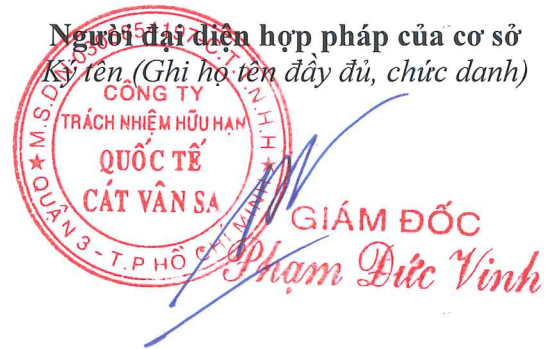 Người đại diện hợp pháp của cơ sở
Ký tên (Ghi họ tên đầy đủ, chức danh)
CÔNG TY
TRÁCH NHIỆM HỮU HẠN
QUỐC TẾ
CÁT VÂN SA
QUẬN 3 - T.P HỒ CHÍ MINH
GIÁM ĐỐC
Phạm Đức Vinh